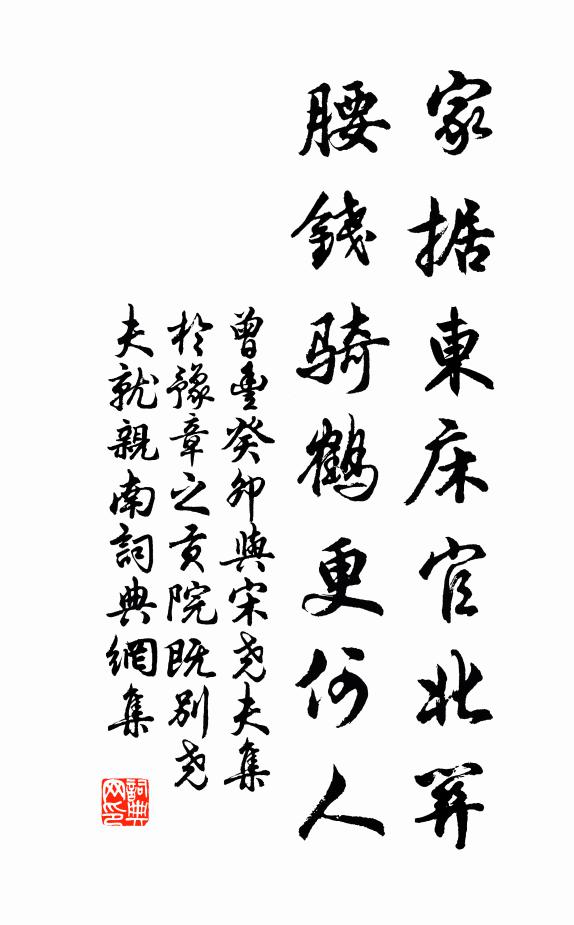 家据東床官北
腰錢騎鶴更何人
曾豐癸卯與宋堯夫集
於豫章之貢院既別堯
夫就親南詞典網集
詞典
网印